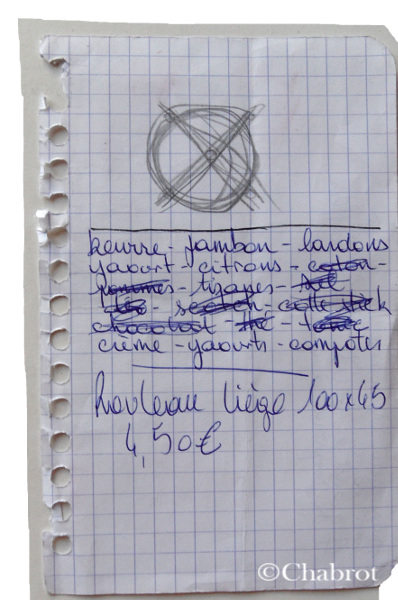 beurre - jambon - lardons
yaourt - citrons - coton -
pommes - tisanes -
scotch - colle stick
chocolat - thé -
crème - yaourts - compotes
Rouleau liège 100x45
4,50€
©Chabrot